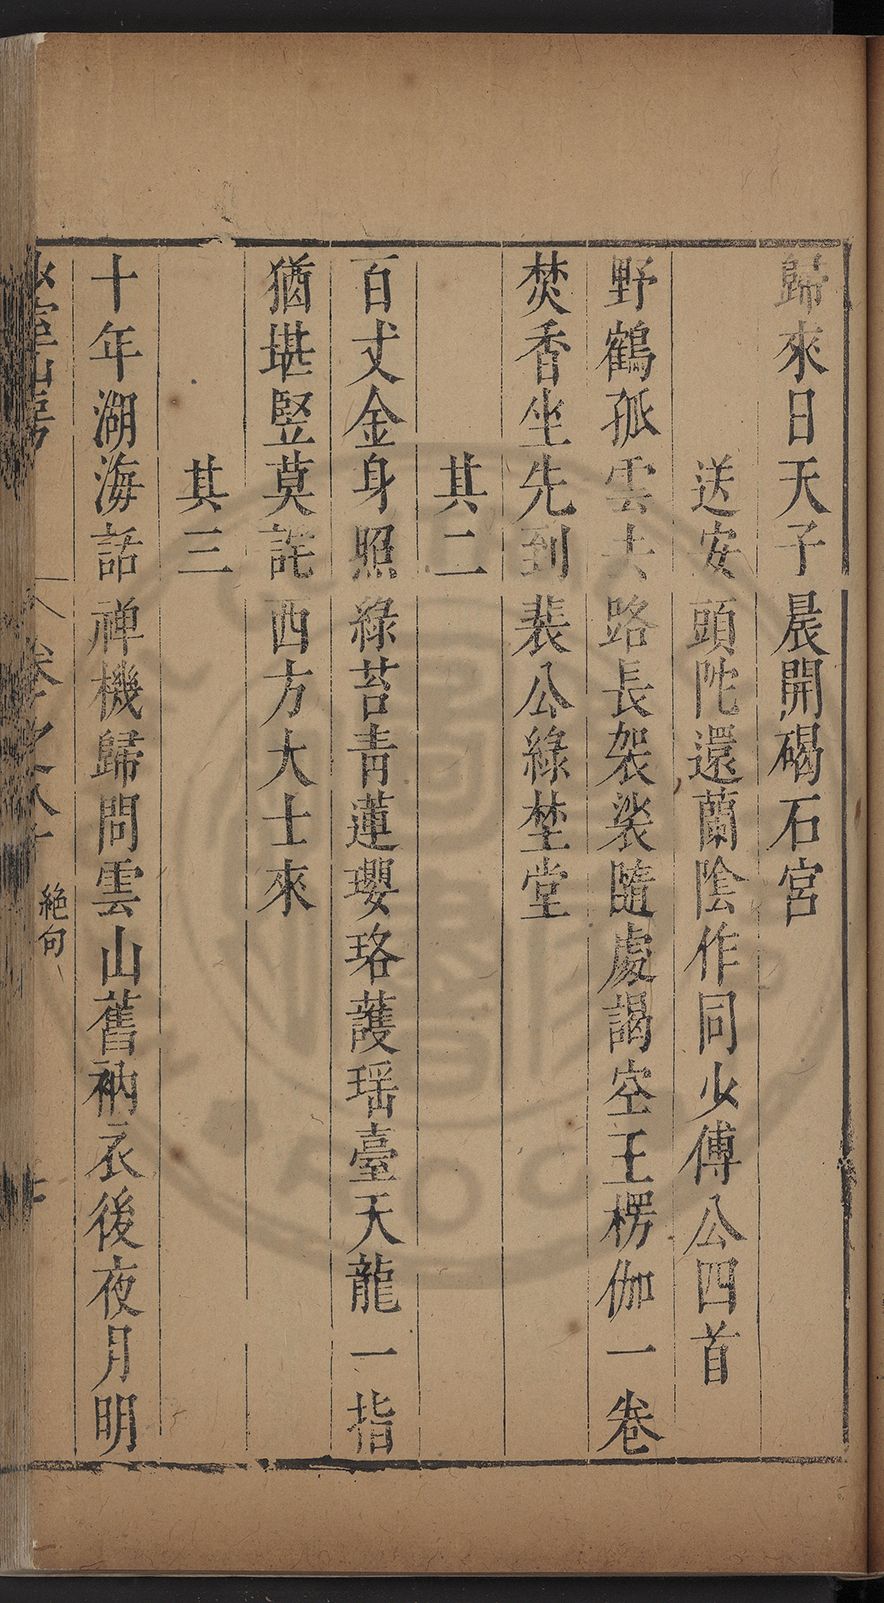 歸來日天子晨開碣石宮
送安頭陀還蘭陰作同少傅公四首
野鶴孤雲去路長袈裟隨處謁空王楞伽一卷
焚香坐先到裴公綠埜堂
其二
百丈金身照綠苔青蓮瓔珞護瑶臺天龍一指
猶堪竪莫詫西方大士來
其三
十年湖海話禅機歸問雲山舊衲衣後夜月明
山房
卷之八十
絶句